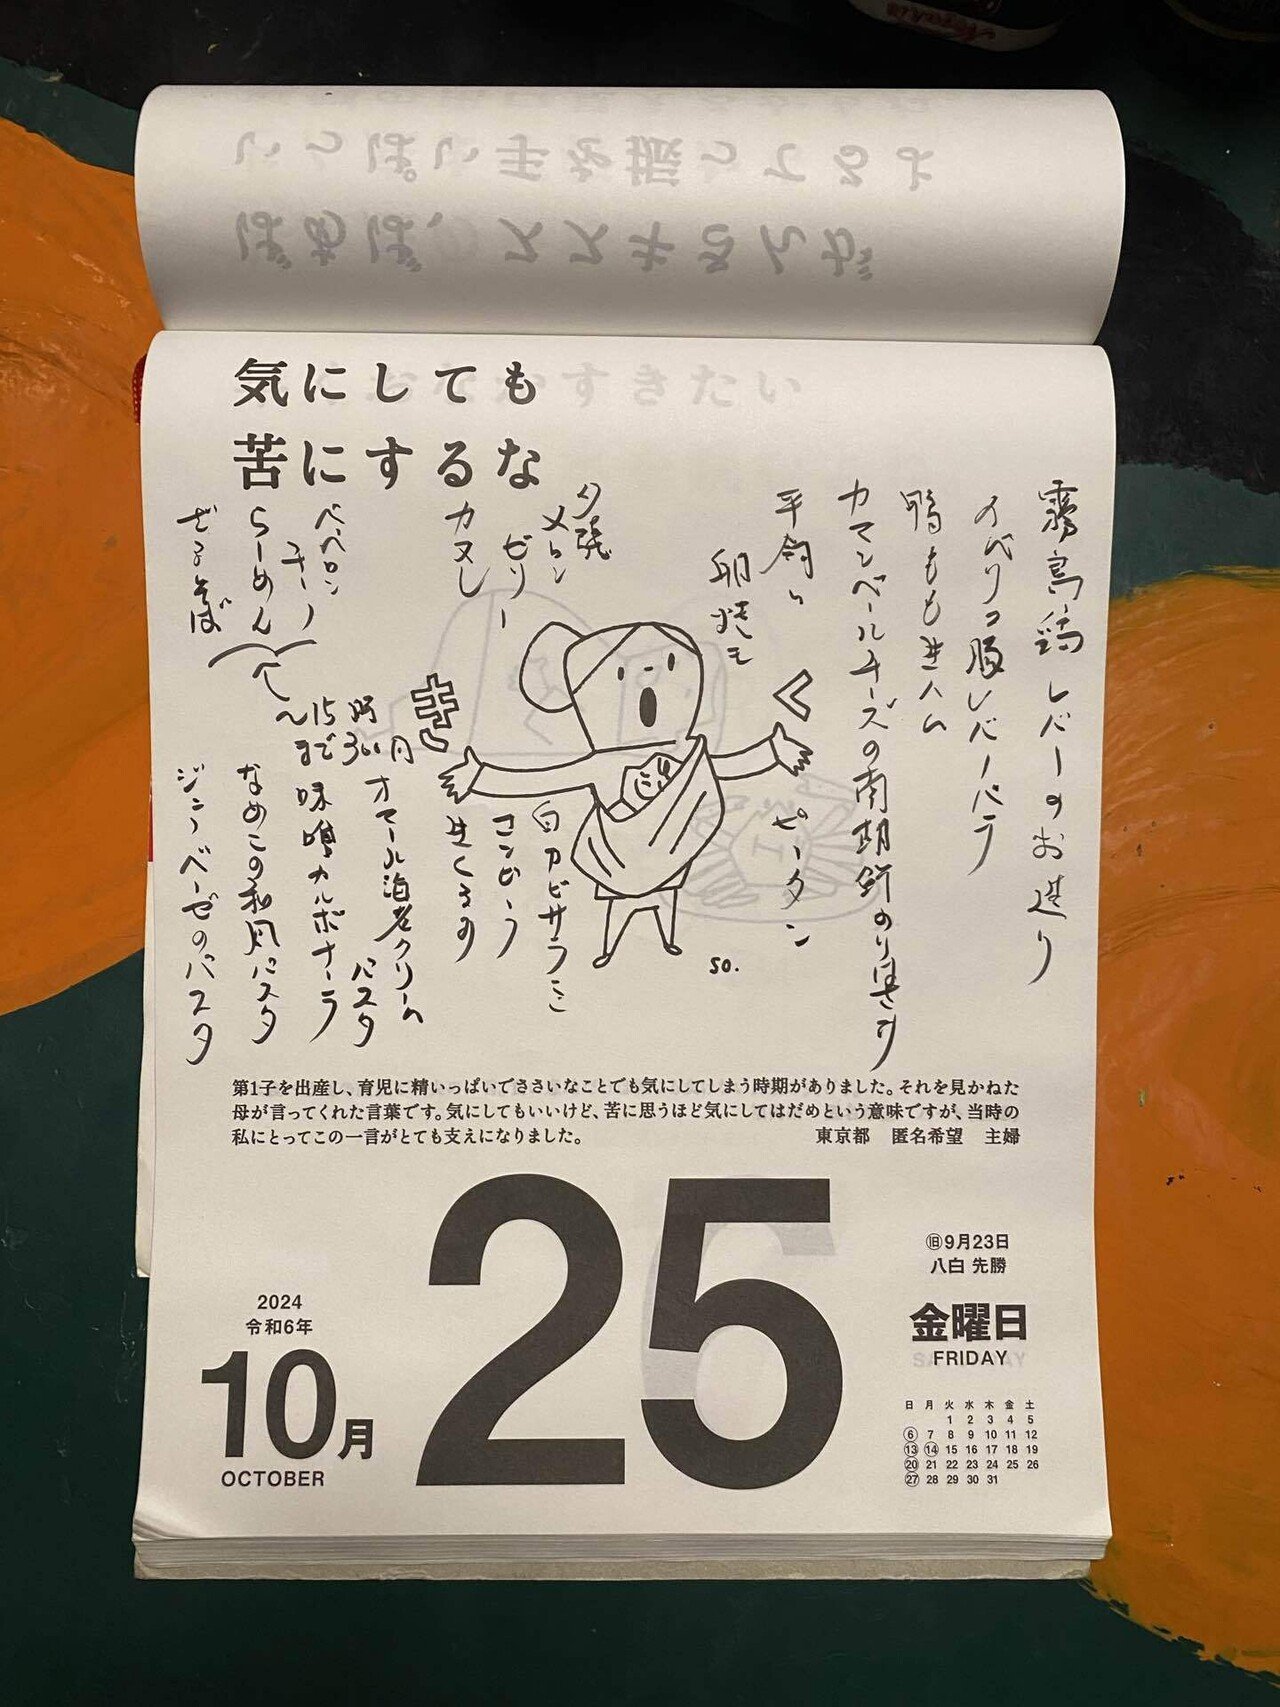 気にしても
苦にするな
霧島鶏レバーのお造り
イベリコ豚レバーパテ
鴨もも生ハム
カマンベールチーズの南部餅のり巻き
平飼い
卵焼き
ピータン
く
夕張
メロン
ゼリー
カヌレ
き
白カビサラミ
コンビーフ
生くるみ
ペペロン
チーノ
らーめん
ざるそば
オマール海老クリーム
パスタ
味噌カルボナーラ
なめこの和風パスタ
ジェノベーゼのパスタ
so.
第1子を出産し、育児に精いっぱいでささいなことでも気にしてしまう時期がありました。それを見かねた
母が言ってくれた言葉です。気にしてもいいけど、苦に思うほど気にしてはだめという意味ですが、当時の
私にとってこの一言がとても支えになりました。 東京都 匿名希望 主婦
2024
令和6年
10月
OCTOBER
25
旧9月23日
八白 先勝
金曜日
FRIDAY
日 月 火 水 木 金 土
1 2 3 4 5
6 7 8 9 10 11 12
13 14 15 16 17 18 19
20 21 22 23 24 25 26
27 28 29 30 31